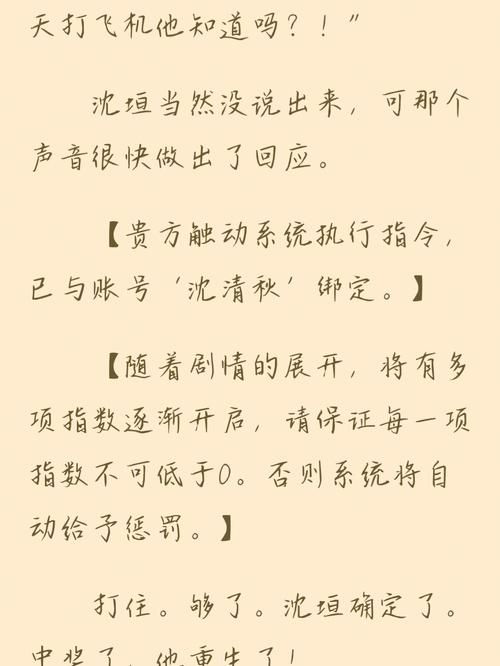 天打飞机他知道吗？！”
沈垣当然没说出来，可那个
声音很快做出了回应。
【贵方触动系统执行指令，
已与账号‘沈清秋’绑定。】
【随着剧情的展开，将有多
项指数逐渐开启，请保证每一项
指数不可低于0。否则系统将自
动给予惩罚。】
打住。够了。沈垣确定了。
中奖了，他重生了！